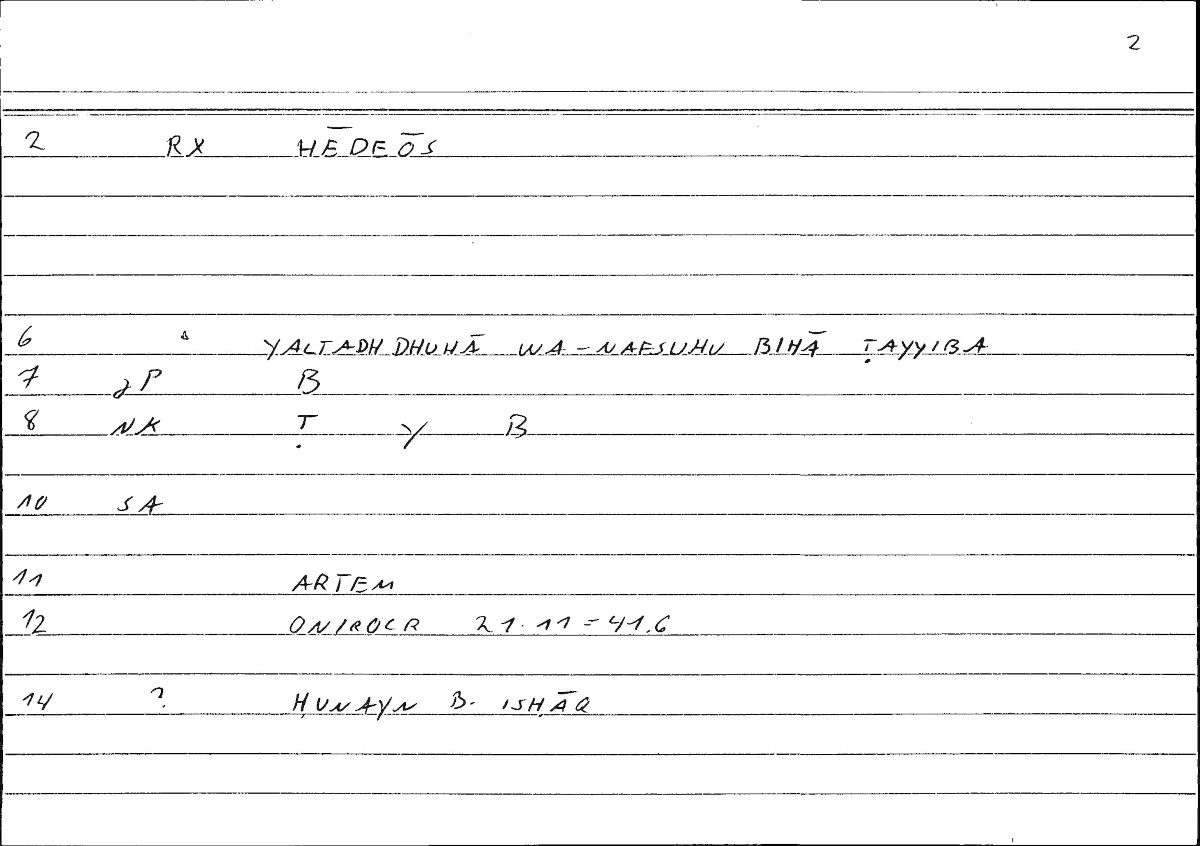 2
2 RX HĒDEŌS
6 YALTADHDHUHĀ WA-NAFSUHU BIHĀ ṬAYYIBA
7 JP B
8 NK Ṭ Y B
10 SA
11 ARTEM
12 ONIROCR 21.11=41.6
14 ? ḤUNAYN B. ISḤĀQ